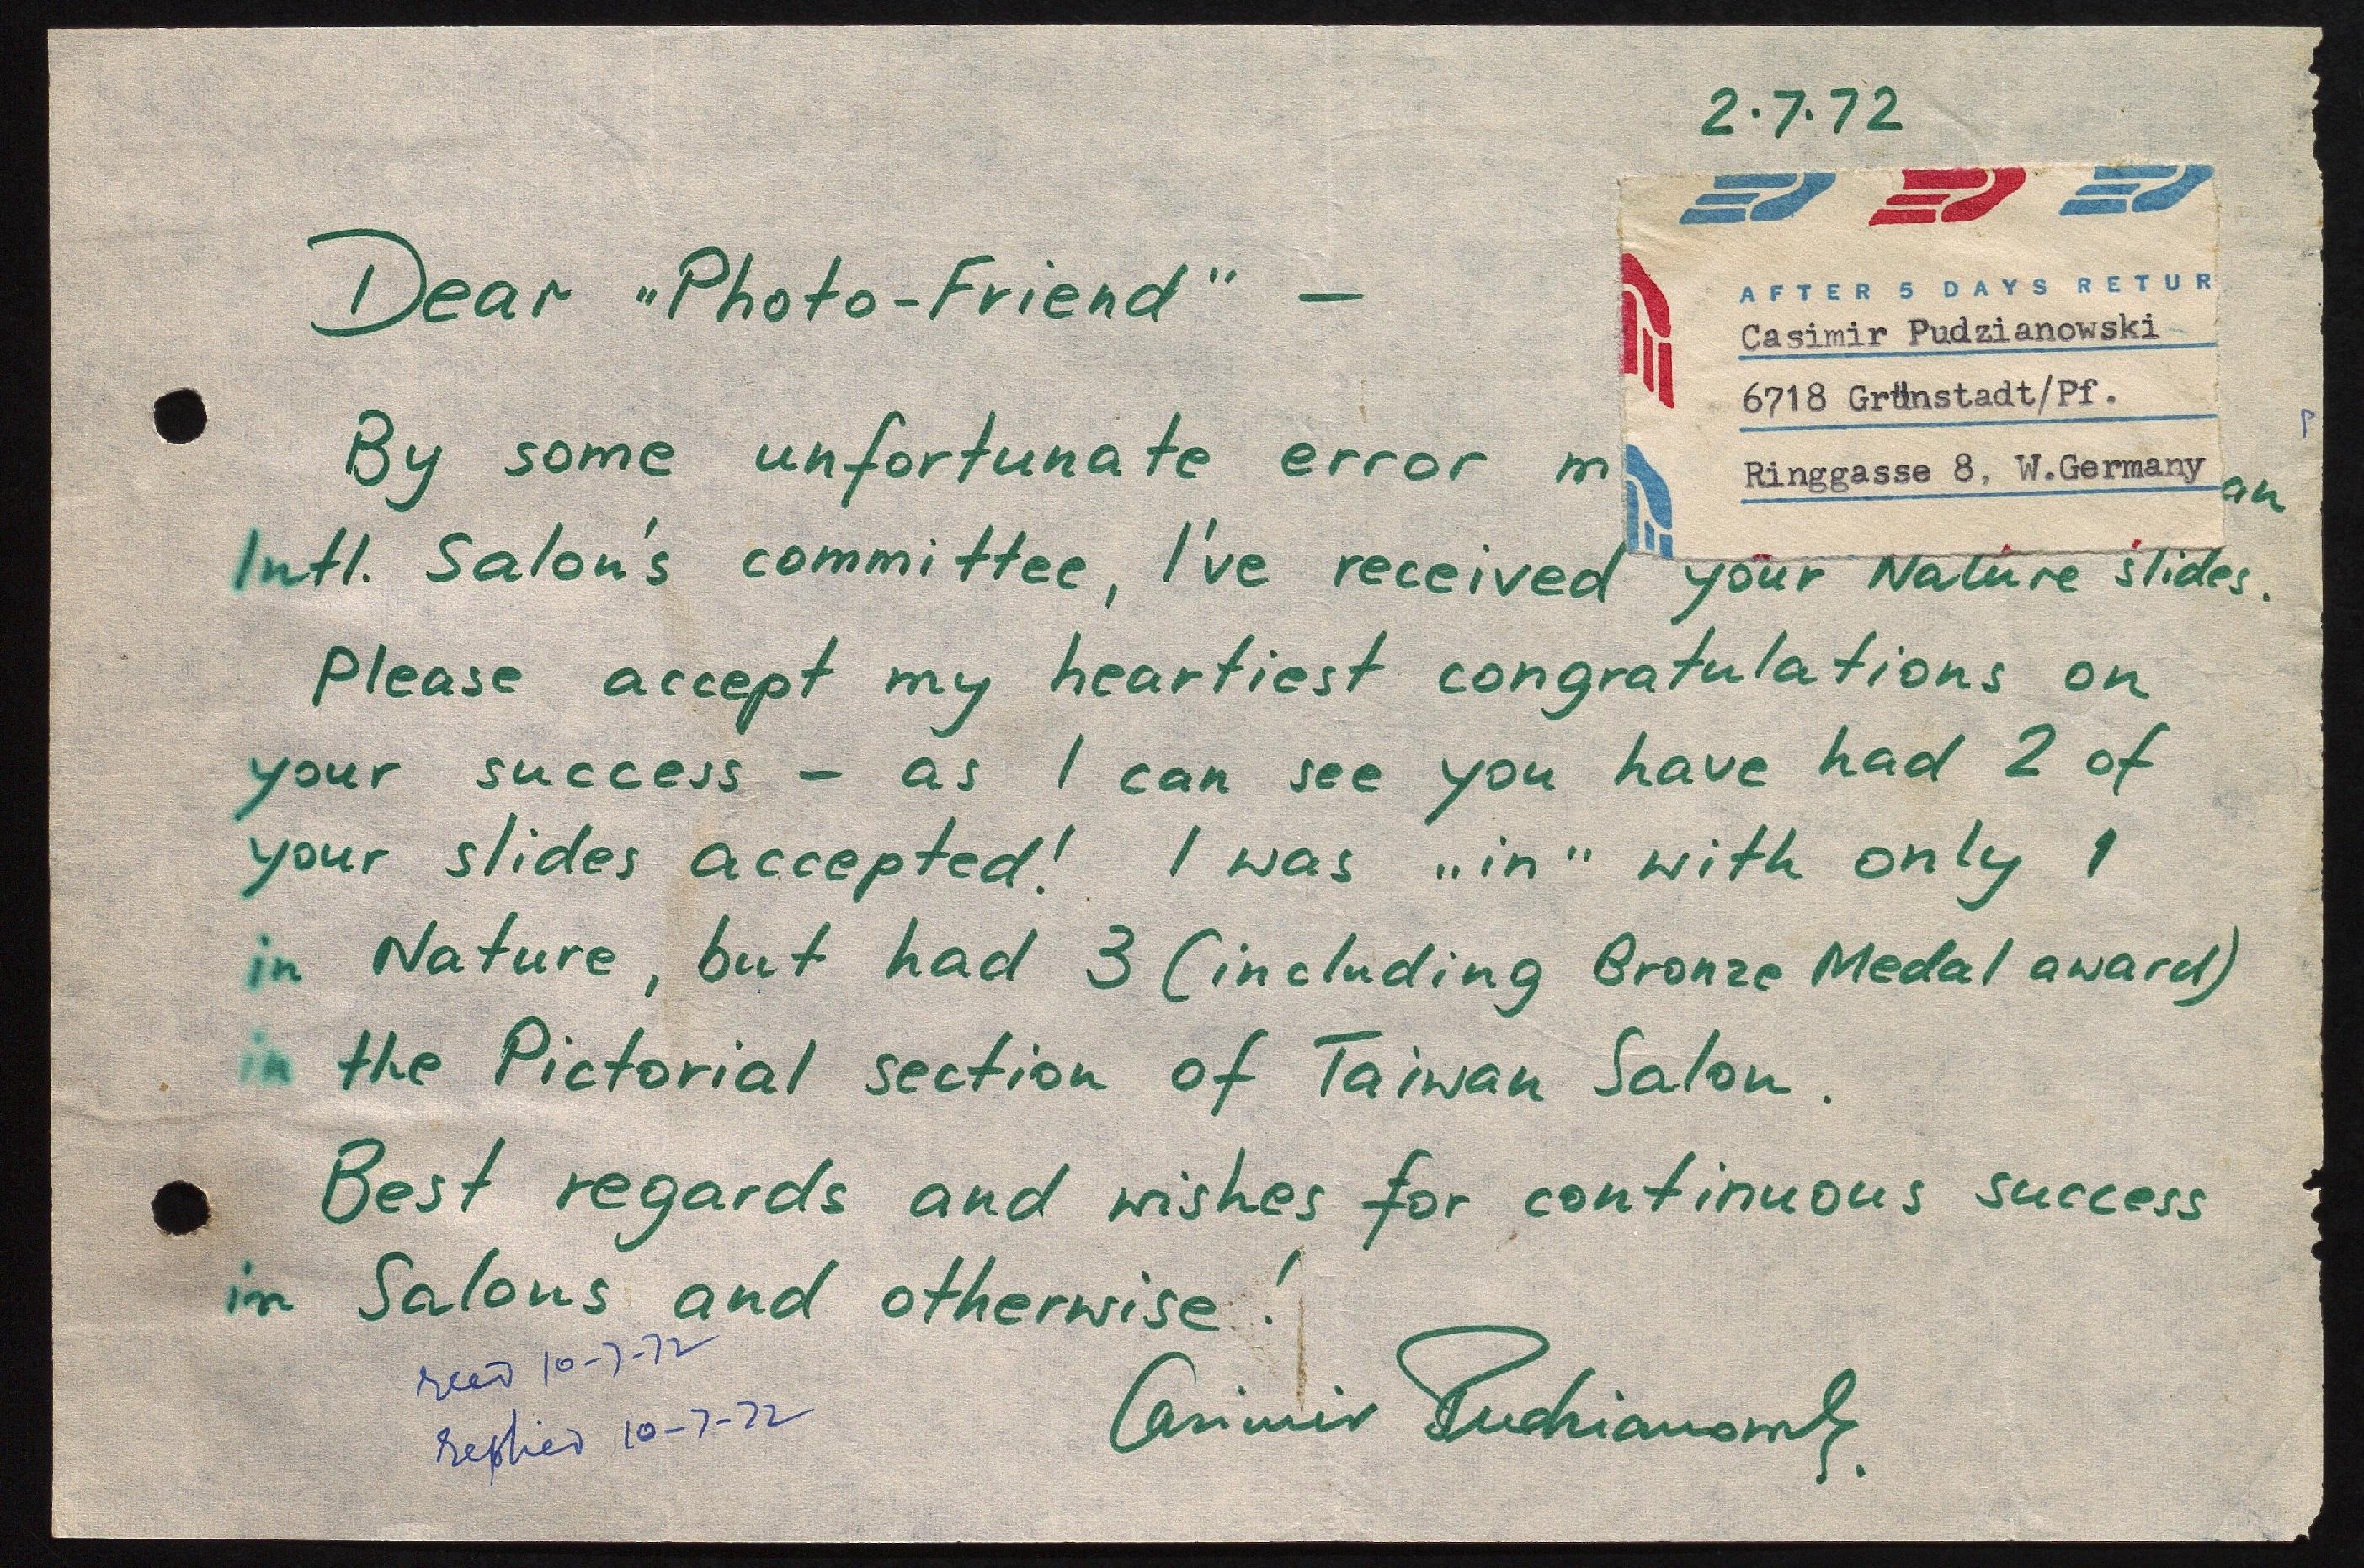 2.7.72
AFTER 5 DAYS RETUR
Casimir Pudzianowski
6718 Grünstadt/Pf.
Ringgasse 8, W.Germany
Dear „Photo-Friend" —
By some unfortunate error m
an
Intl. Salon's committee, I've received your Nature slides.
Please accept my heartiest congratulations on
your success – as I can see you have had 2 of
your slides accepted! I was „in" with only 1
in Nature, but had 3 (including Bronze Medal award)
in the Pictorial section of Taiwan Salon.
Best regards and wishes for continuous success
in Salons and otherwise!
recd 10-7-72
replied 10-7-72
Casimir Pudzianowski.